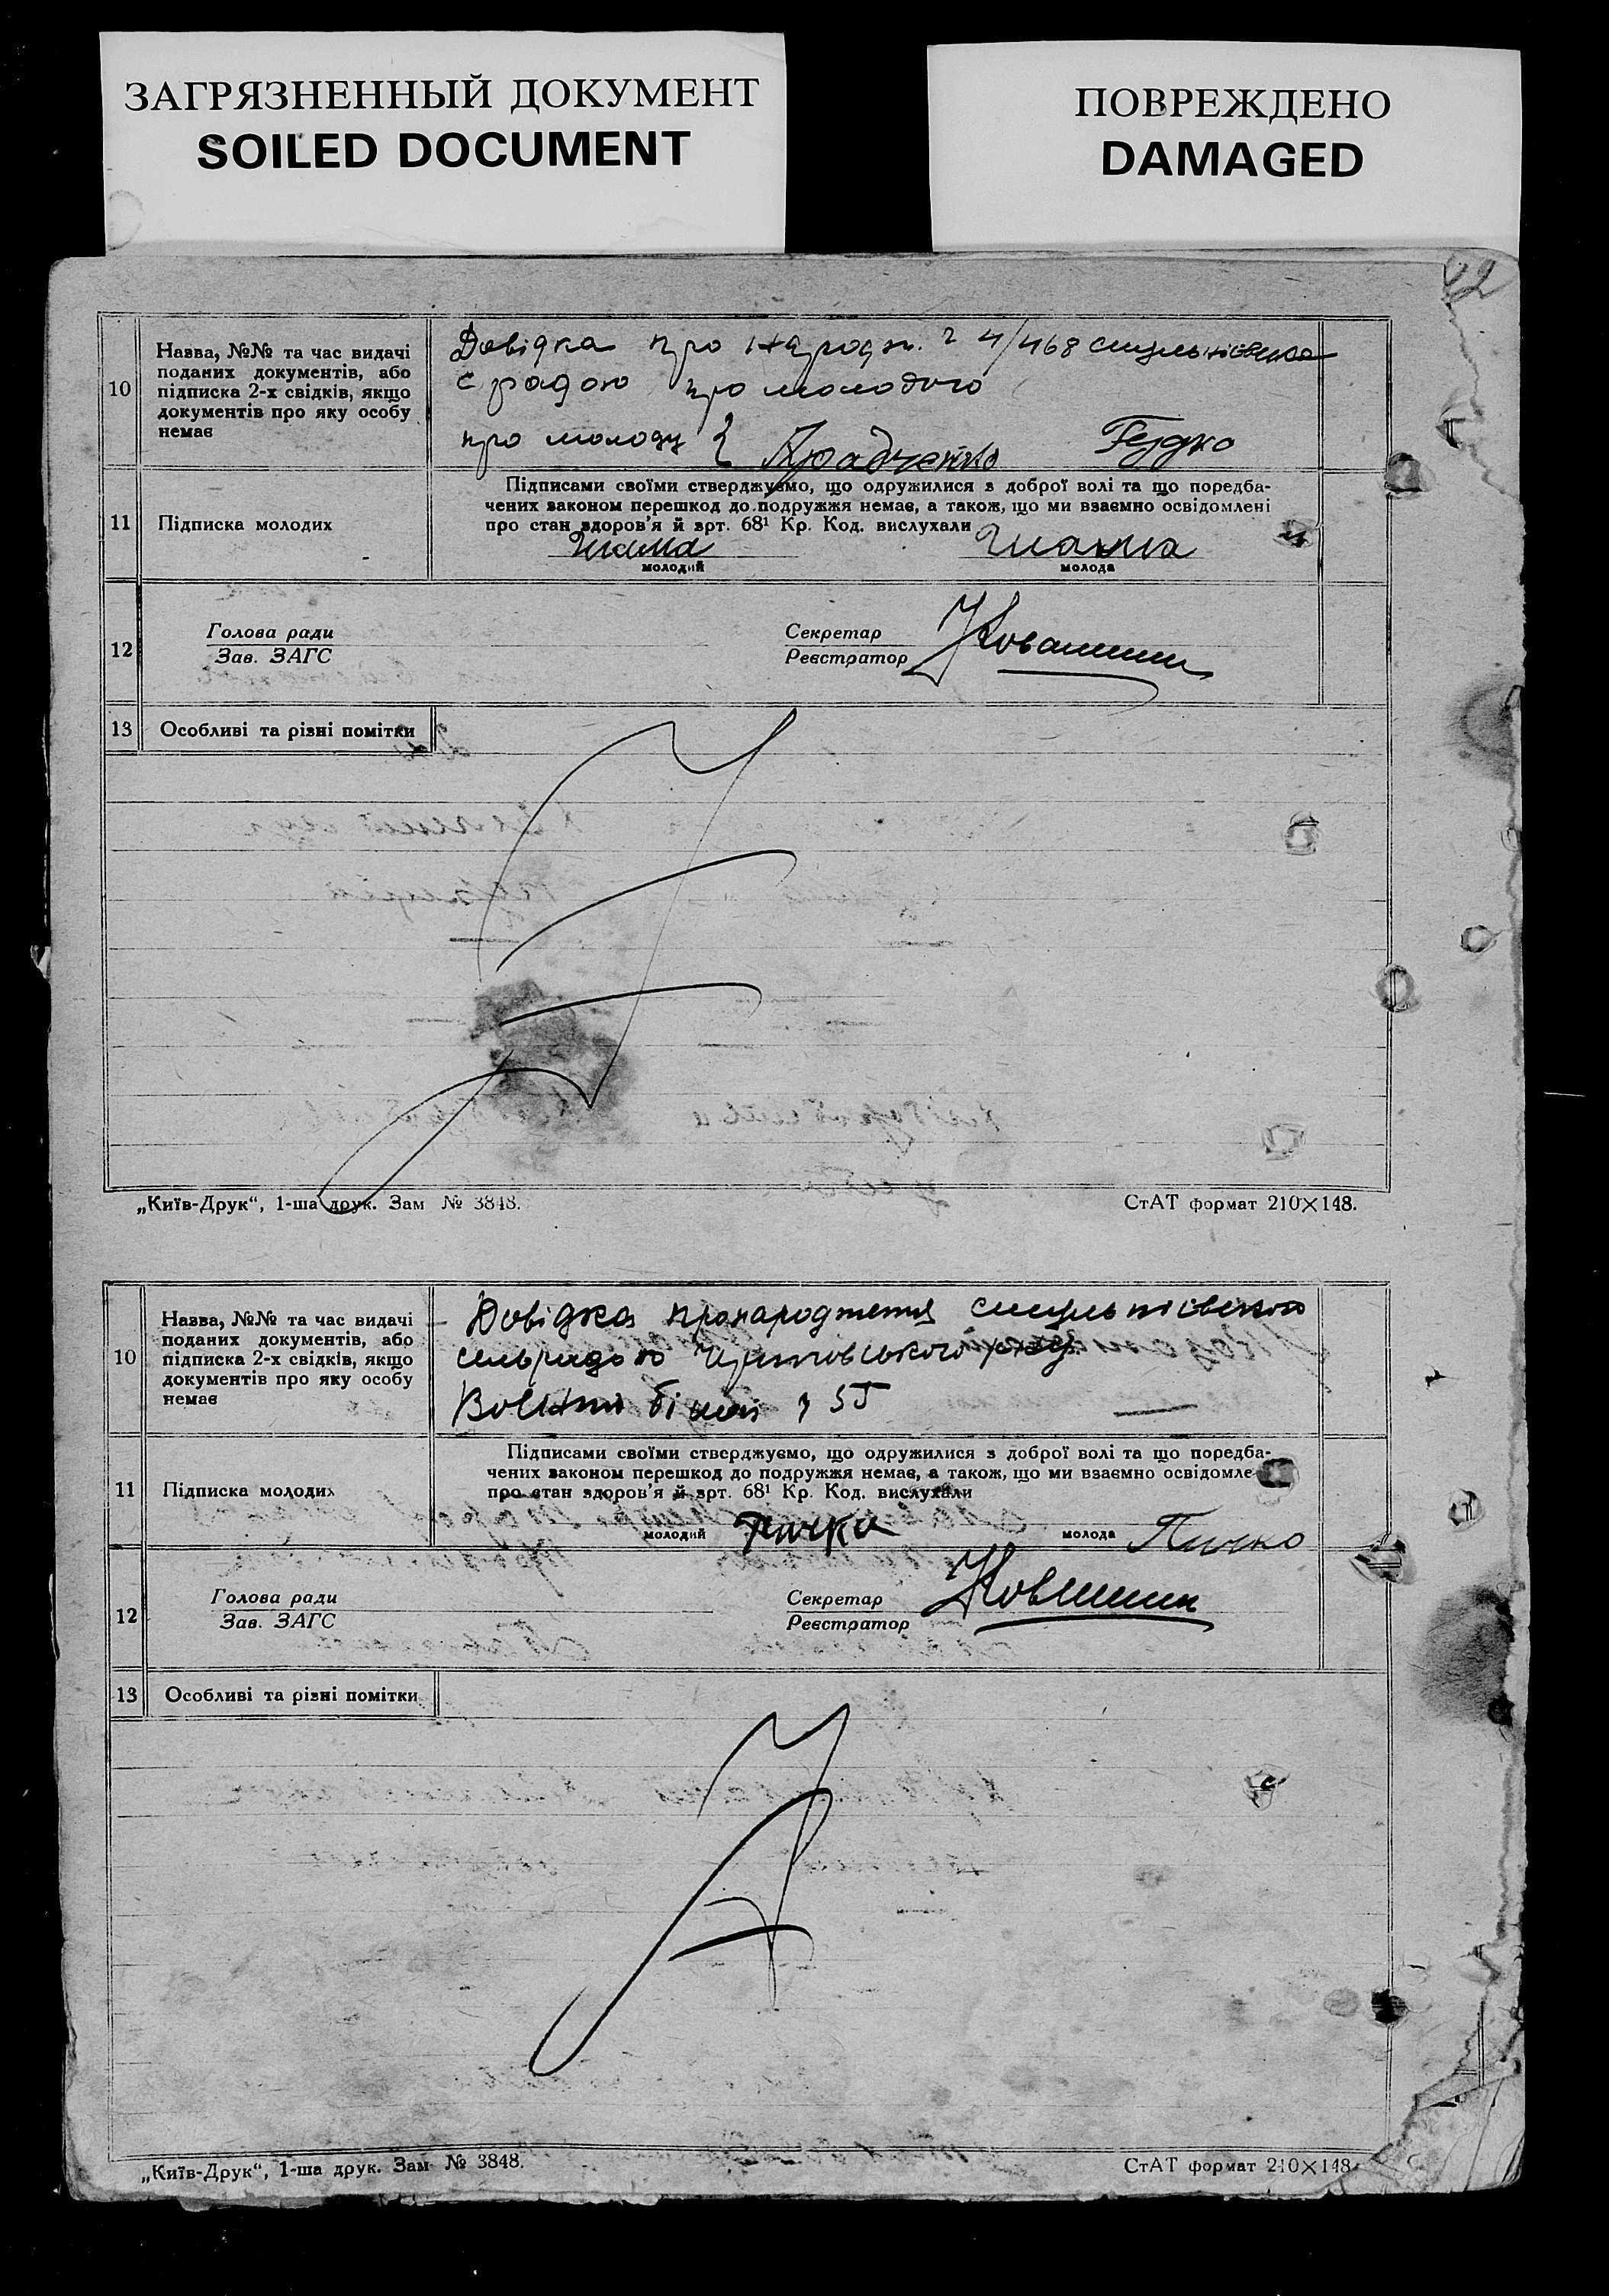 ЗАГРЯЗНЕННЫЙ ДОКУМЕНТ
SOILED DOCUMENT
ПОВРЕЖДЕНО
DAMAGED
42
10
Назва, №№ та час видачі
поданих документів, або
підписка 2-х свідків, якщо
документів про яку особу
немає
Довідка про народж. 4/468
с радою про молодого
про молоду
11
Підписка молодих
Підписами своїми стверджуємо, що одружилися з доброї волі та що поредба-
чених законом перешкод до подружжя немає, а також, що ми взаємно освідомлені
про стан здоров'я й арт. 68¹ Кр. Код. вислухали
молодий
молода
12
Голова ради
Зав. ЗАГС
Секретар
Реєстратор
13
Особливі та різні помітки
„Київ-Друк“, 1-ша друк. Зам № 3848.
СтАТ формат 210×148.
10
Назва, №№ та час видачі
поданих документів, або
підписка 2-х свідків, якщо
документів про яку особу
немає
Довідка про народження
сельрадою
11
Підписка молодих
Підписами своїми стверджуємо, що одружилися з доброї волі та що поредба-
чених законом перешкод до подружжя немає, а також, що ми взаємно освідомле
про стан здоров'я й арт. 68¹ Кр. Код. вислухали
молодий
молода
12
Голова ради
Зав. ЗАГС
Секретар
Реєстратор
13
Особливі та різні помітки
„Київ-Друк“, 1-ша друк. Зам № 3848.
СтАТ формат 210×148